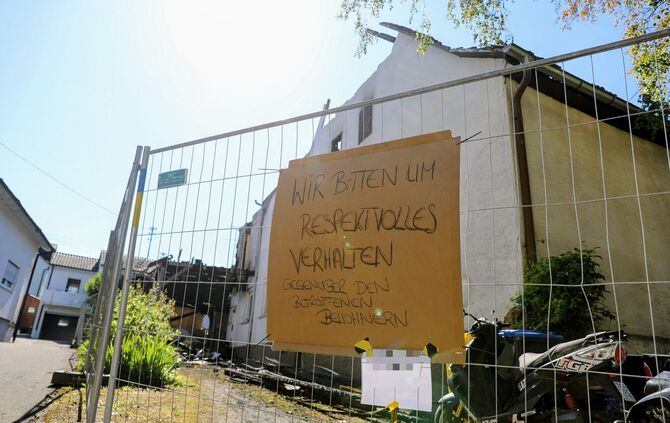 WIR BITTEN UM
RESPEKTVOLLES
VERHALTEN
GEGENÜBER DEN
BETROFFENEN
BEWOHNERN